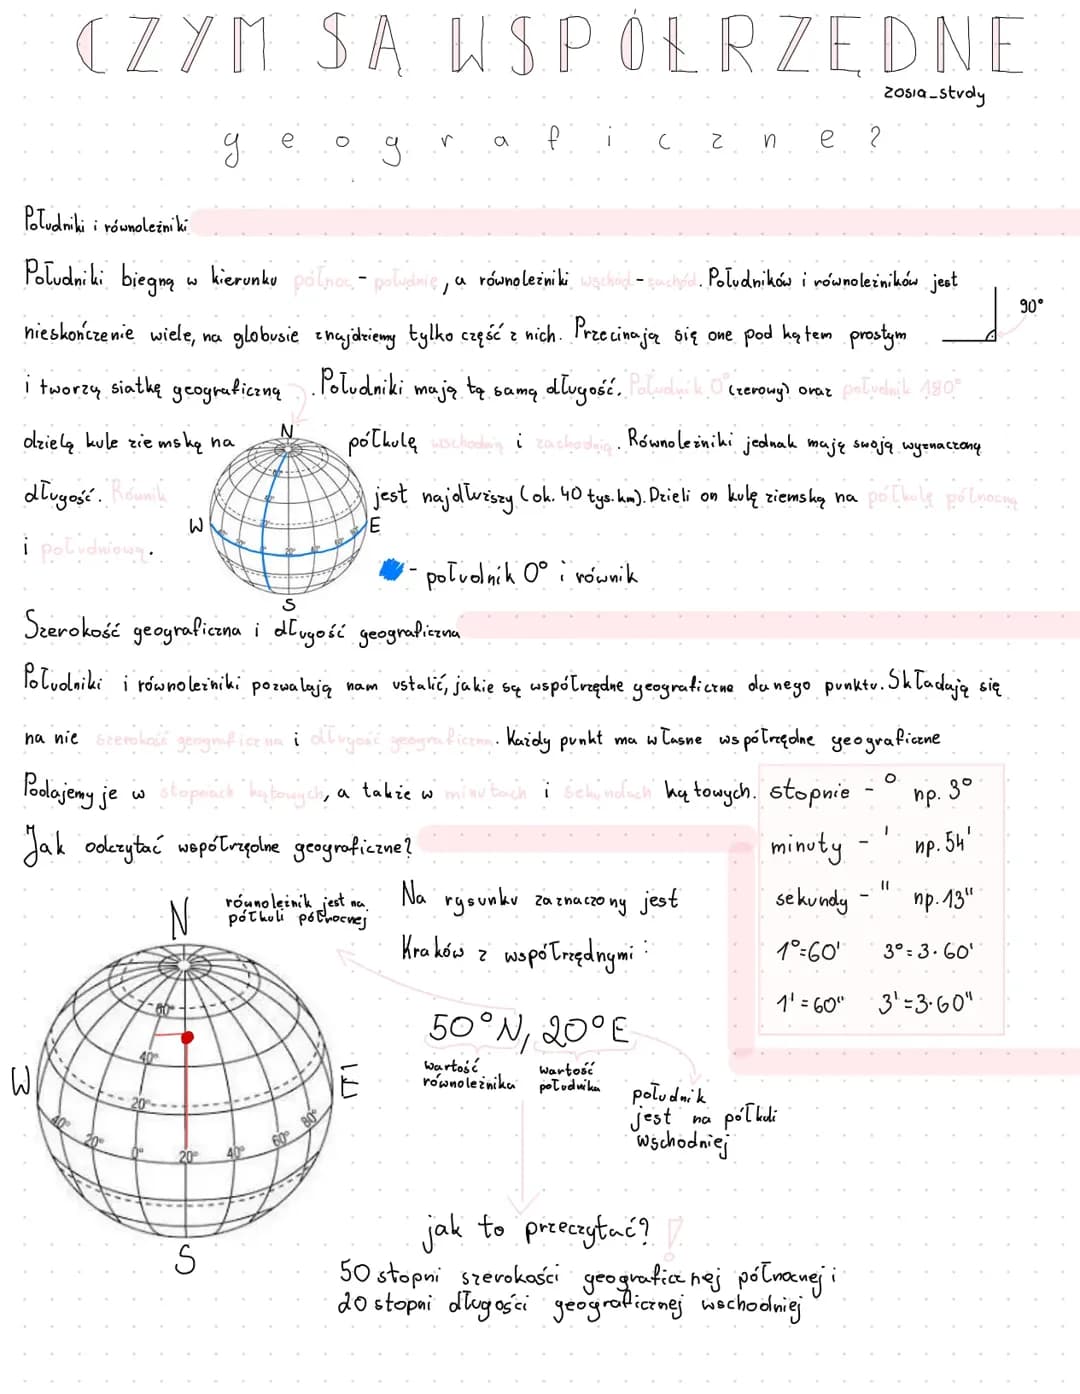 CZYM SĄ WSPÓŁRZĘDNE
zosia_study
geograficzne?
Południki i równoleżniki
Południki biegną w kierunku północ - południe, a równoleżniki wschód - zachód. Południków i równoleżników jest
90°
nieskończenie wiele, na globusie znajdziemy tylko część z nich. Przecinają się one pod kątem prostym
i tworzą siatkę geograficzną. Południki mają tą samą długość. Południk 0° (zerowy) oraz południk 180°
dzielą kule ziemską na półkulę wschodnią i zachodnią. Równoleżniki jednak mają swoją wyznaczoną
długość. Równik jest najdłuższy (ok. 40 tys. km). Dzieli on kulę ziemską na półkulę północną
i południową.
N
W
E
S
- południk 0° i równik
Szerokość geograficzna i długość geograficzna
Południki i równoleżniki pozwalają nam ustalić, jakie są współrzędne geograficzne danego punktu. Składają się
na nie szerokość geograficzna i długość geograficzna. Każdy punkt ma własne współrzędne geograficzne
Podajemy je w stopniach kątowych, a także w minutach i sekundach kątowych.
stopnie - ° np. 3°
minuty - ' np. 54'
sekundy - " np. 13"
1°=60' 3°=3·60'
1'=60" 3'=3·60"
Jak odczytać współrzędne geograficzne?
N
równoleżnik jest na
półkuli północnej
Na rysunku zaznaczony jest
Kraków z współrzędnymi:
50°N, 20°E
wartość
równoleżnika
wartość
południka
południk
jest na półkuli
wschodniej
W
E
80°
40°
20°
40° 20° 0° 20° 40° 60° 80°
S
jak to przeczytać?!
50 stopni szerokości geograficznej północnej i
20 stopni długości geograficznej wschodniej